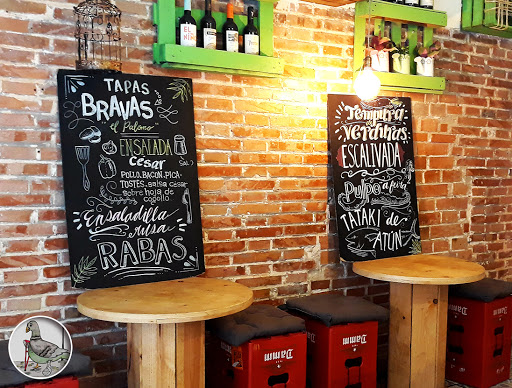 TAPAS
BRAVAS
el Palomo
ENSALADA
César
POLLO, BACON, PICA-
TOSTES, salsa césar
sobre hoja de
cogollo
Ensaladilla
rusa
RABAS
Tempura
de
verduras
ESCALIVADA
Pulpo a feira
TATAKI de
ATÚN
Damm
Damm
Damm